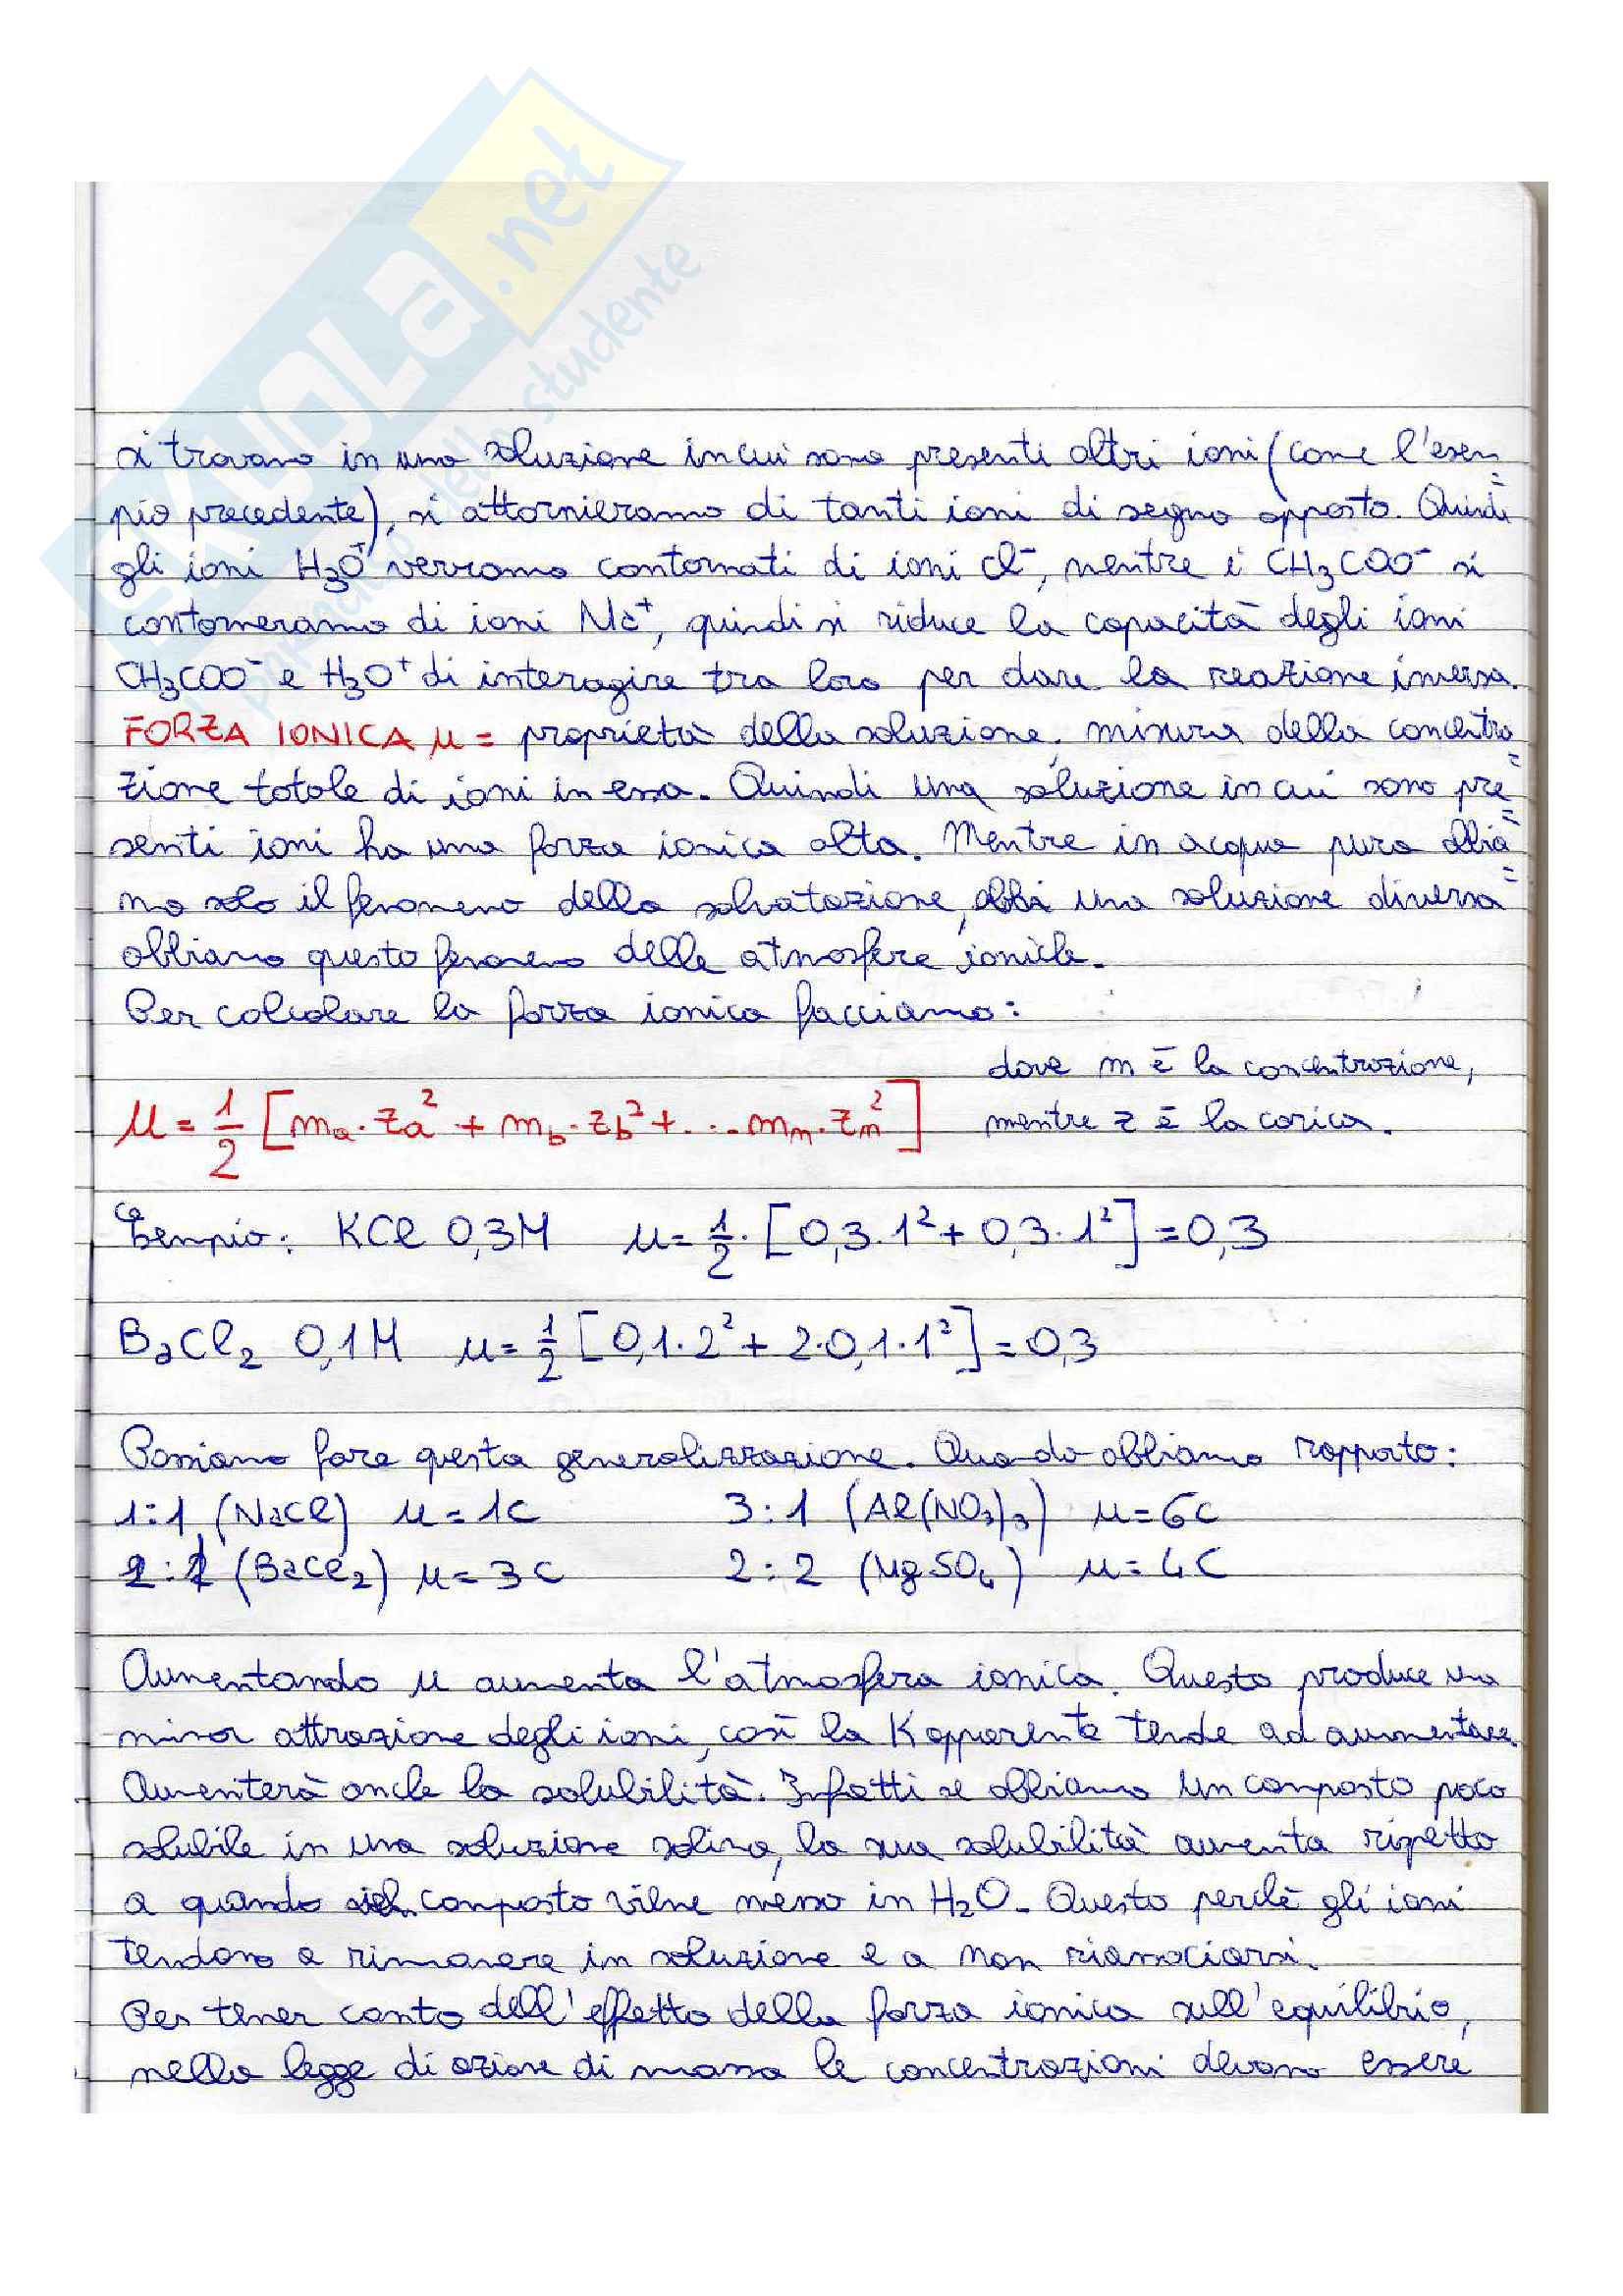 SKUOLa.net
il mondo dello studente
si trovano in una soluzione in cui sono presenti altri ioni (come l'esem=
pio precedente), si attornieranno di tanti ioni di segno opposto. Quindi
gli ioni H₃O⁺ verranno contornati di ioni Cl⁻, mentre i CH₃COO⁻ si
contorneranno di ioni Na⁺, quindi si riduce la capacità degli ioni
CH₃COO⁻ e H₃O⁺ di interagire tra loro per dare la reazione inversa.
FORZA IONICA μ = proprietà della soluzione, misura della concentra=
zione totale di ioni in essa. Quindi una soluzione in cui sono pre=
senti ioni ha una forza ionica alta. Mentre in acqua pura abbia=
mo solo il fenomeno della solvatazione, in una soluzione diversa
abbiamo questo fenomeno delle atmosfere ioniche.
Per calcolare la forza ionica facciamo:
dove m è la concentrazione,
μ = 1/2 [ma·za² + mb·zb² + ... mn·zn²] mentre z è la carica.
Esempio: KCl 0,3M μ = 1/2·[0,3·1² + 0,3·1²] = 0,3
BaCl₂ 0,1M μ = 1/2 [0,1·2² + 2·0,1·1²] = 0,3
Possiamo fare questa generalizzazione. Quando abbiamo rapporto:
1:1 (NaCl) μ = 1C 3:1 (Al(NO₃)₃) μ = 6C
2:1 (BaCl₂) μ = 3C 2:2 (MgSO₄) μ = 4C
Aumentando μ aumenta l'atmosfera ionica. Questo produce una
minor attrazione degli ioni, così la K apparente tende ad aumentare.
Aumenterà anche la solubilità. Infatti se abbiamo un composto poco
solubile in una soluzione salina, la sua solubilità aumenta rispetto
a quando il composto viene messo in H₂O. Questo perchè gli ioni
tendono a rimanere in soluzione e a non riassociarsi.
Per tener conto dell'effetto della forza ionica sull'equilibrio,
nella legge di azione di massa le concentrazioni devono essere